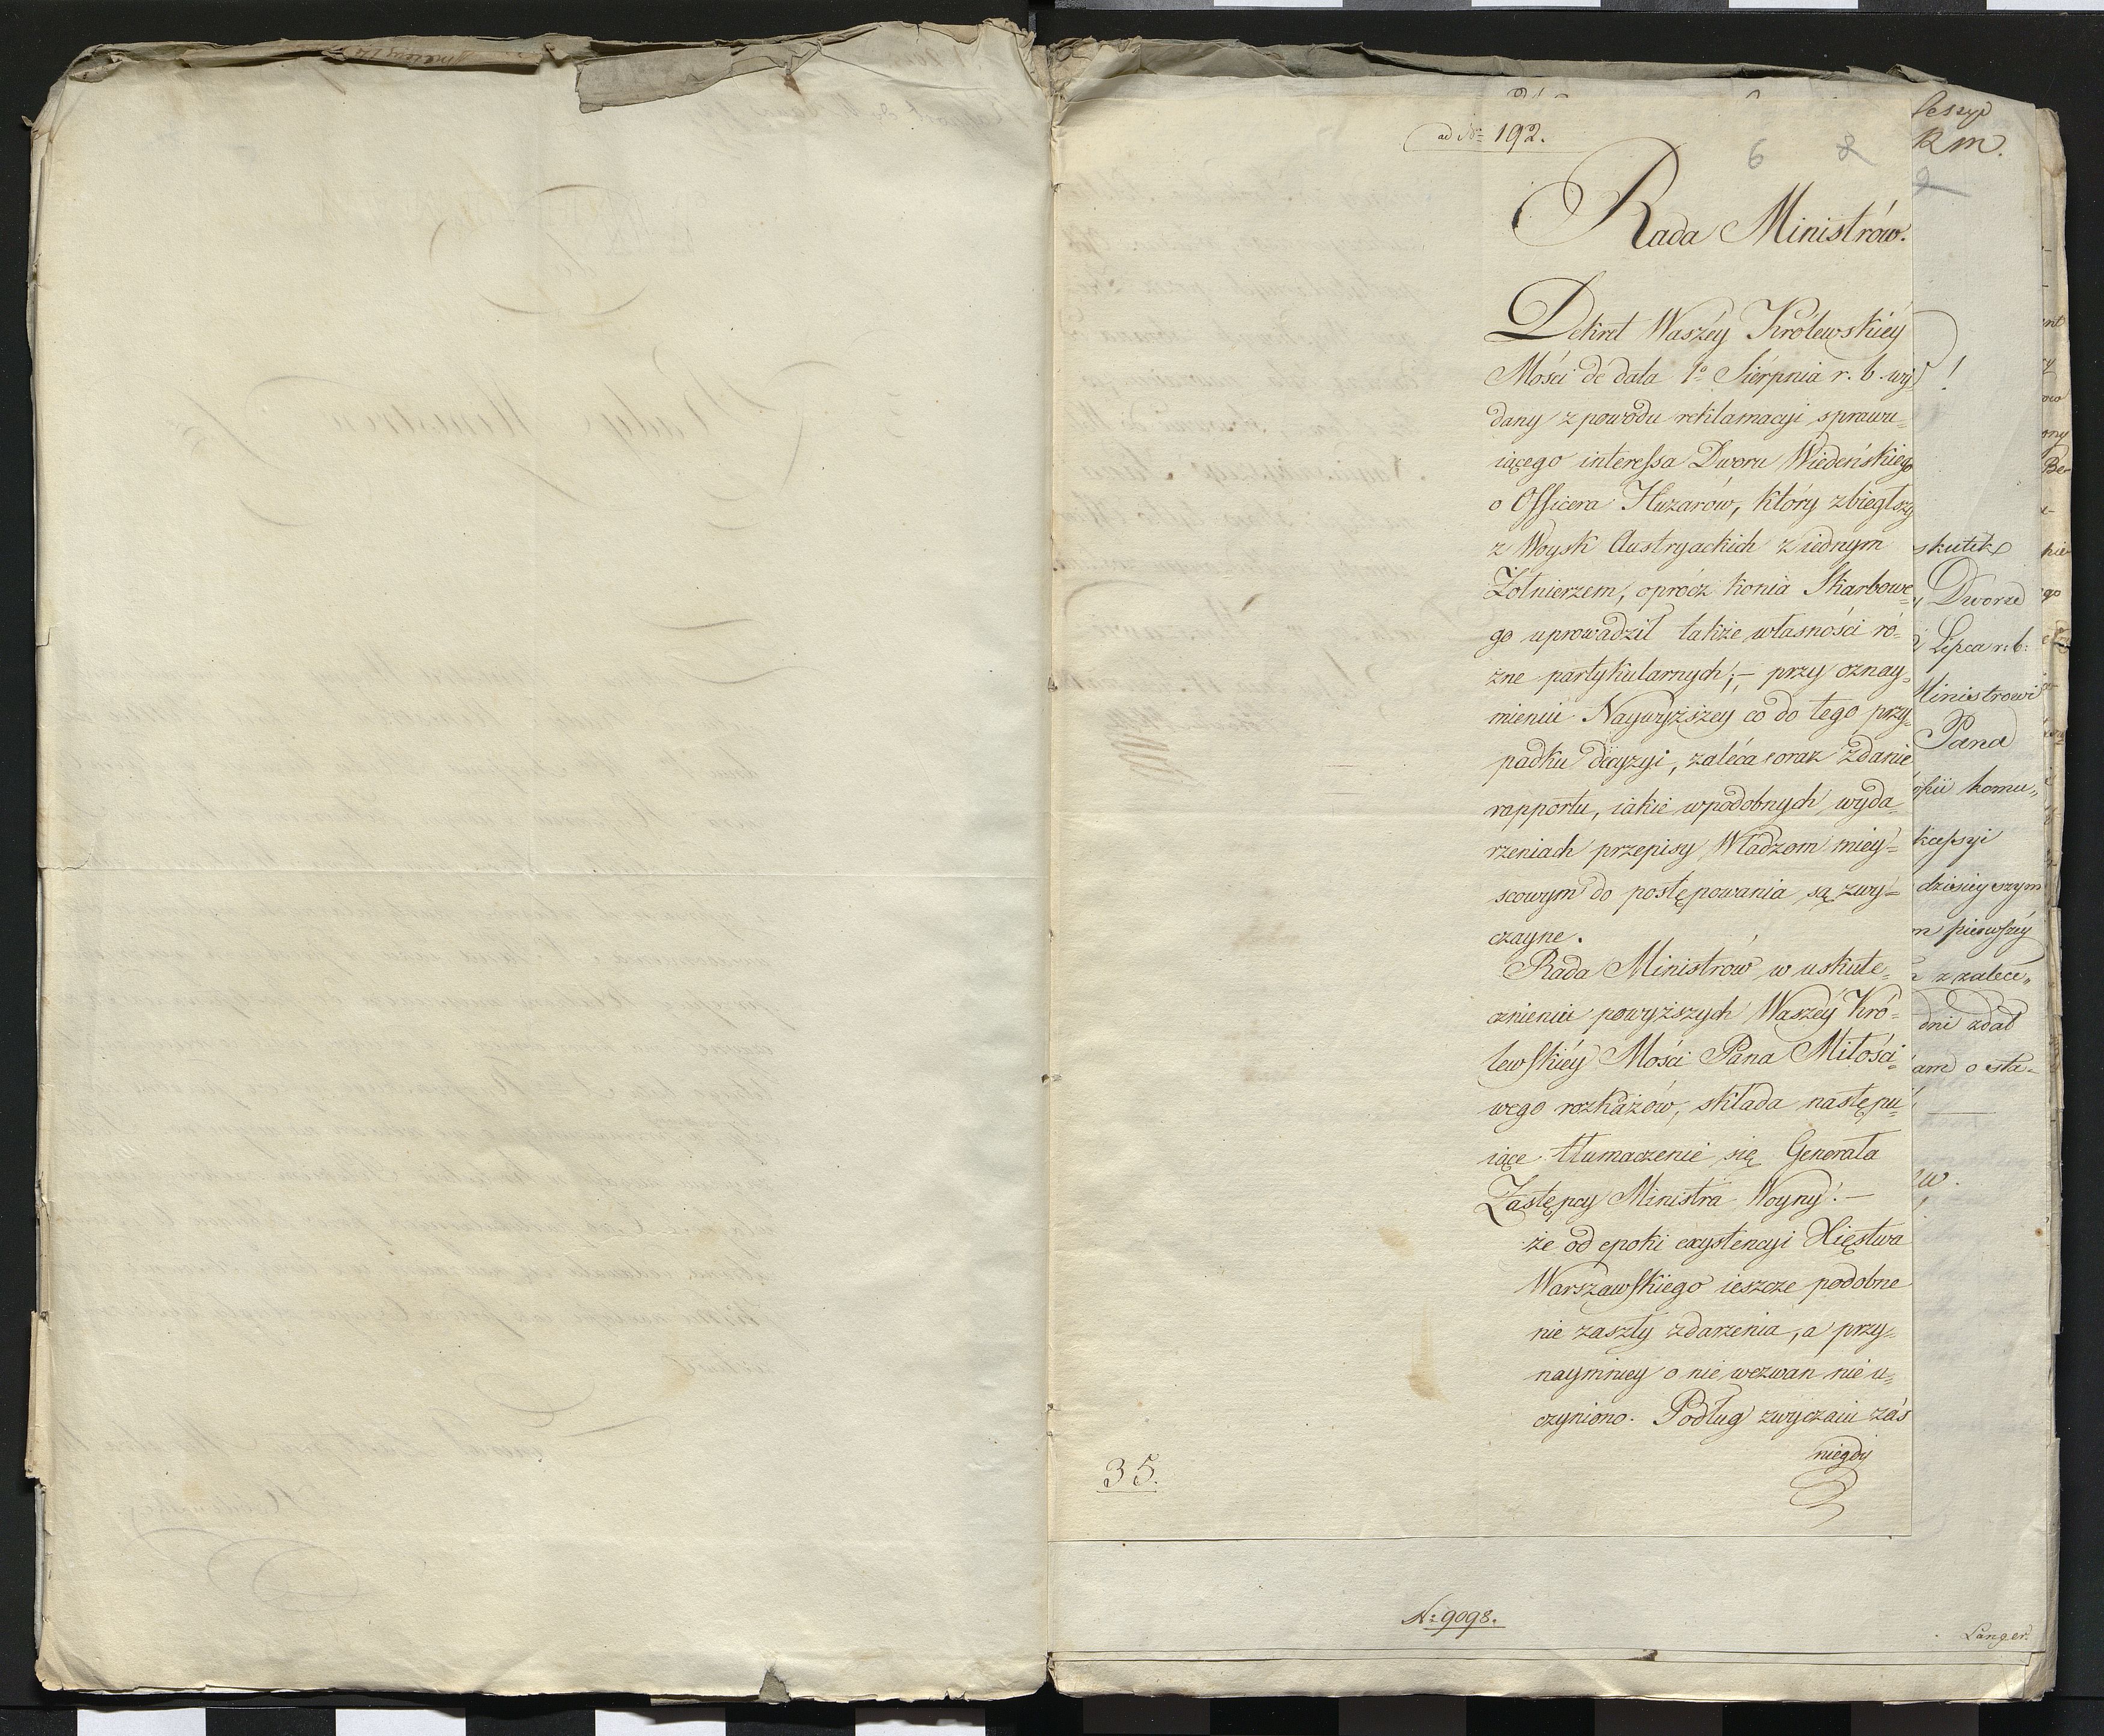 ad No 192.
6 8
Rada Ministrów.
Dekret Waszéy Królewskiéy
Mości de data 1o Sierpnia r. b. wy
dany z powodu reklamacyi sprawu-
iącego interessa Dworu Wiedeńskiego
o Officera Huzarów, który zbiegłszy
z Woysk Austryackich z iednym
Żołnierzem, oprócz konia Skarbowe-
go uprowadził także własności ró-
żne partykularnych; - przy oznay-
mieniu Naywyższey co do tego przy-
padku decyzyi, zaleca oraz zdanie
rapportu, iakie w podobnych wyda-
rzeniach przepisy Władzom miey-
scowym do postępowania są zwy-
czayne.
Rada Ministrów w uskute-
cznieniu powyższych Waszéy Kró-
lewskiéy Mości Pana Miłości-
wego rozkazów, składa następu-
iące tłumaczenie się Generała
Zastępcy Ministra Woyny. -
że od epoki exystencyi Xięstwa
Warszawskiego ieszcze podobne
nie zaszły zdarzenia, a przy-
naymniey o nie wezwan nie u-
czyniono. Podług zwyczaiu zaś
niegdy
35.
No 9098.
R m.
skutek
Dworze
Lipca r: b:
Ministrowi
Pana
komu„
kcessyi
dzisieyszym
m pierwszéy
z zalece„
dni zdał
am o sta-
w.
Langer.